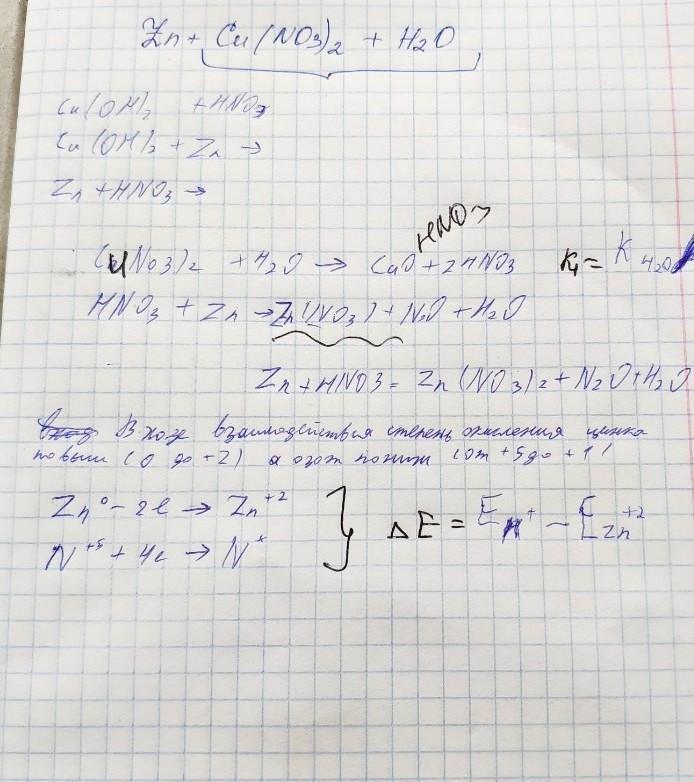 Zn + Cu(NO3)2 + H2O
Cu(OH)2 + HNO3
Cu(OH)2 + Zn →
Zn + HNO3 →
HNO3
(CuNo3)2 + H2O → CuO + 2HNO3 K1 = K H2O
HNO3 + Zn → Zn(NO3) + N2O + H2O
Zn + HNO3 = Zn(NO3)2 + N2O + H2O
В ходе взаимодействия степень окисления цинка
повыш (0 до +2) а азот пониж (от +5 до +1)
Zn⁰ - 2e → Zn⁺²
N⁺⁵ + 4e → N⁺
ΔE = E N⁺ - E Zn⁺²